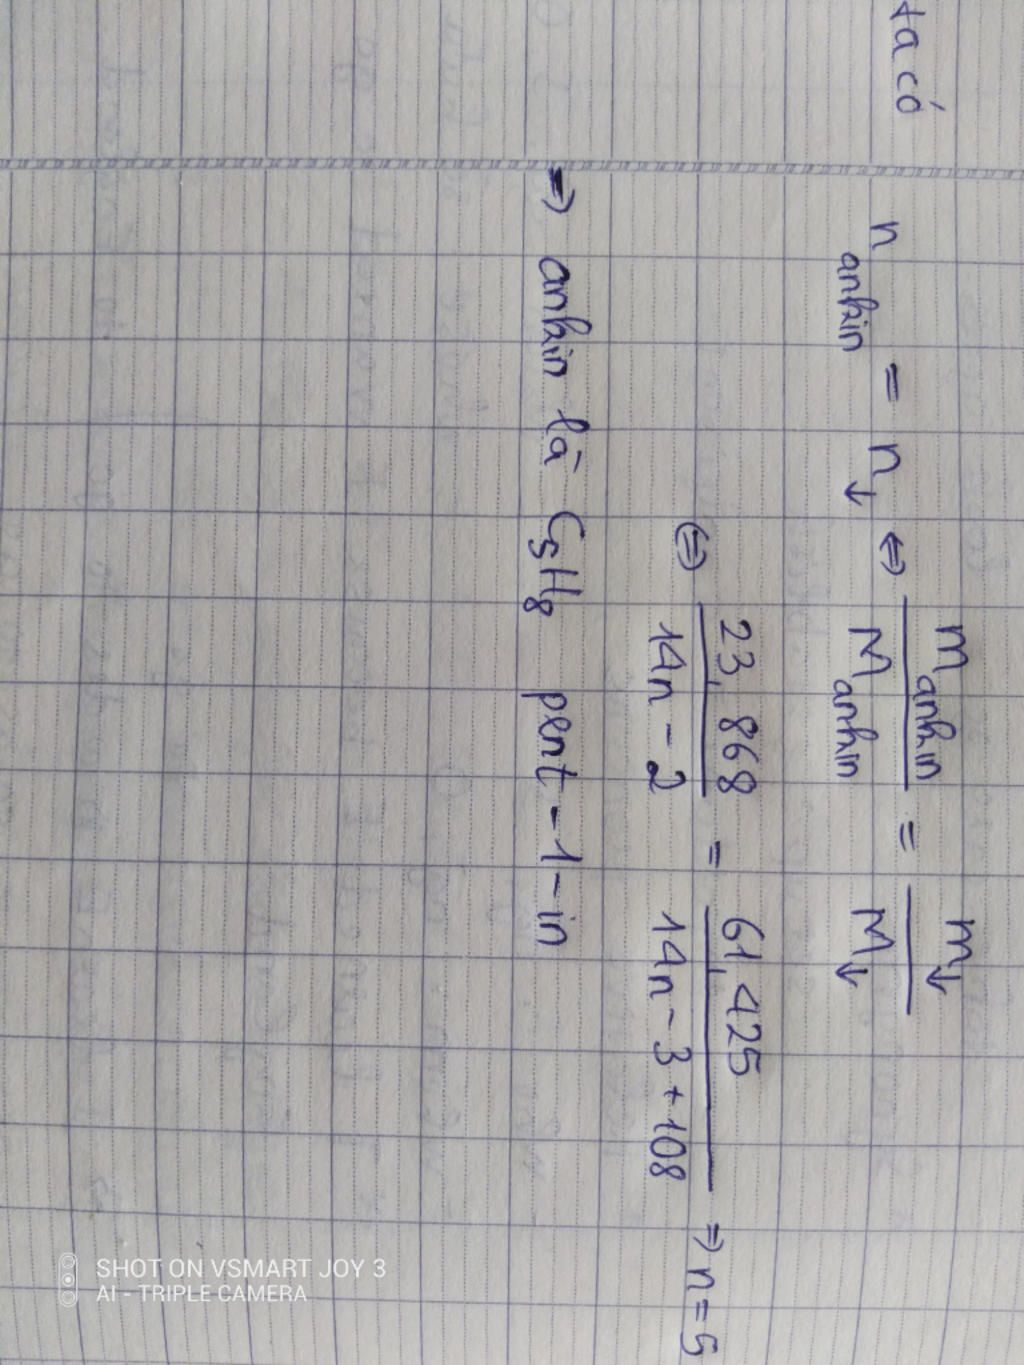 ta có
n ankin = n↓ ⇔ m ankin / M ankin = m↓ / M↓
⇔ 23,868 / 14n - 2 = 61,425 / 14n - 3 + 108 ⇒ n = 5
⇒ ankin là C5H8 pent - 1 - in
SHOT ON VSMART JOY 3
AI - TRIPLE CAMERA